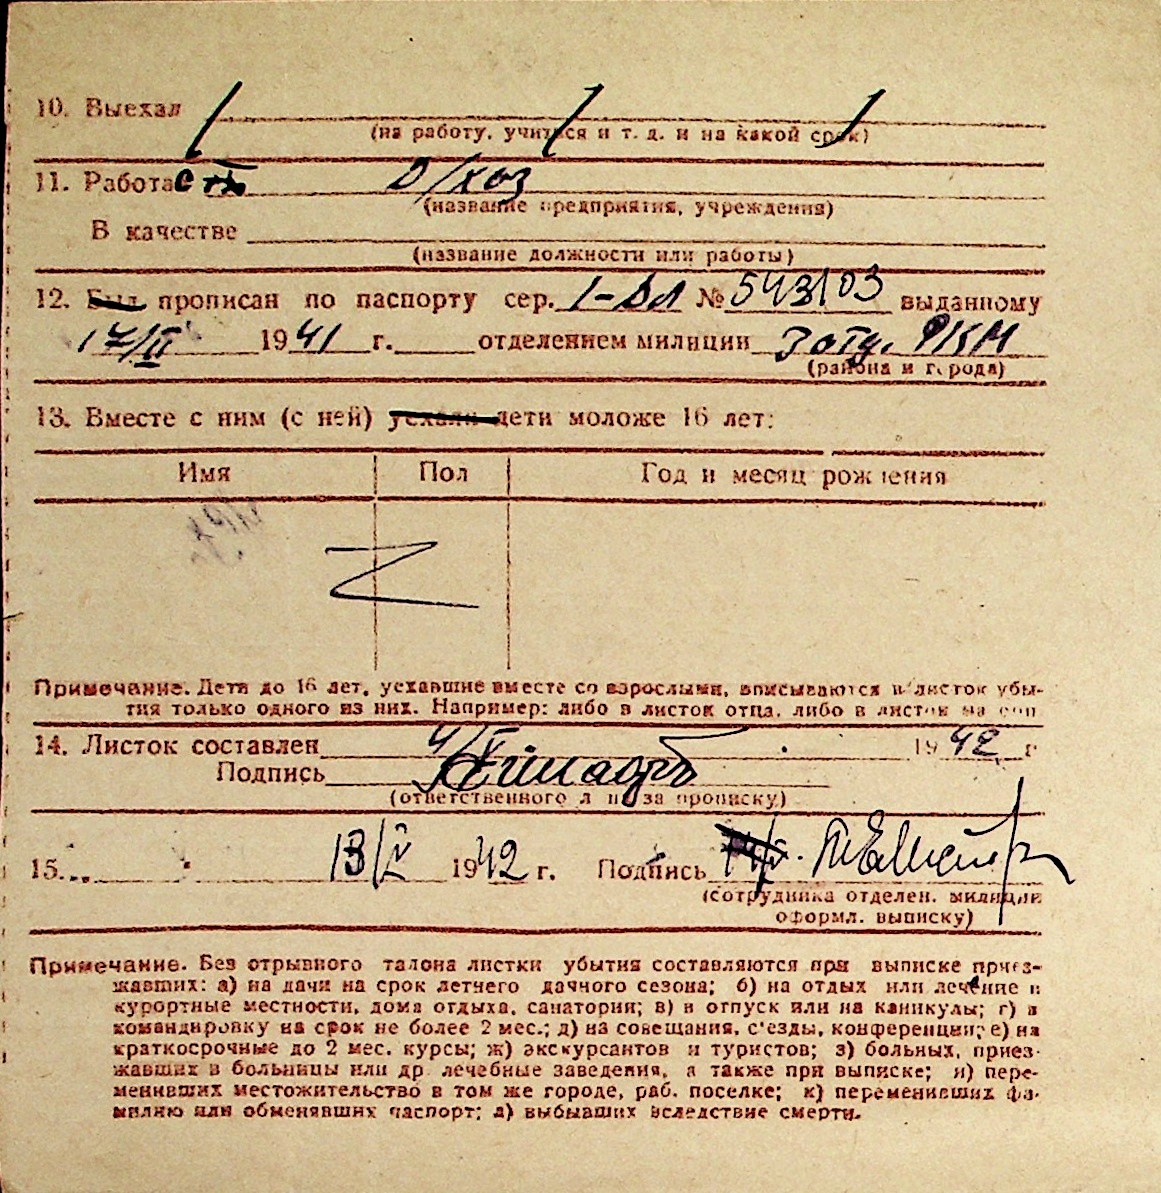 10. Выехал
(на работу, учиться и т. д. и на какой срок)
11. Работа О/хоз
(название предприятия, учреждения)
В качестве
(название должности или работы)
12. Был прописан по паспорту сер. I-ДЛ № 543103 выданному
17/II 1941 г. отделением милиции 3 отд. РКМ
(района и города)
13. Вместе с ним (с ней) уехали дети моложе 16 лет:
Имя Пол Год и месяц рождения
Примечание. Дети до 16 лет, уехавшие вместе со взрослыми, вписываются в листок убы-
тия только одного из них. Например: либо в листок отца, либо в листок
14. Листок составлен 4/V 1942 г
Подпись
(ответственного за прописку)
15. 13/V 1942 г. Подпись
(сотрудника отделен. милиции
оформл. выписку)
Примечание. Без отрывного талона листки убытия составляются при выписке приез-
жавших: а) на дачи на срок летнего дачного сезона; б) на отдых или лечение в
курортные местности, дома отдыха, санатории; в) в отпуск или на каникулы; г) в
командировку на срок не более 2 мес.; д) на совещания, с'езды, конференции; е) на
краткосрочные до 2 мес. курсы; ж) экскурсантов и туристов; з) больных, приез-
жавших в больницы или др лечебные заведения, а также при выписке; и) пере-
менивших местожительство в том же городе, раб. поселке; к) переменивших фа-
милию или обменявших паспорт; л) выбывших вследствие смерти.